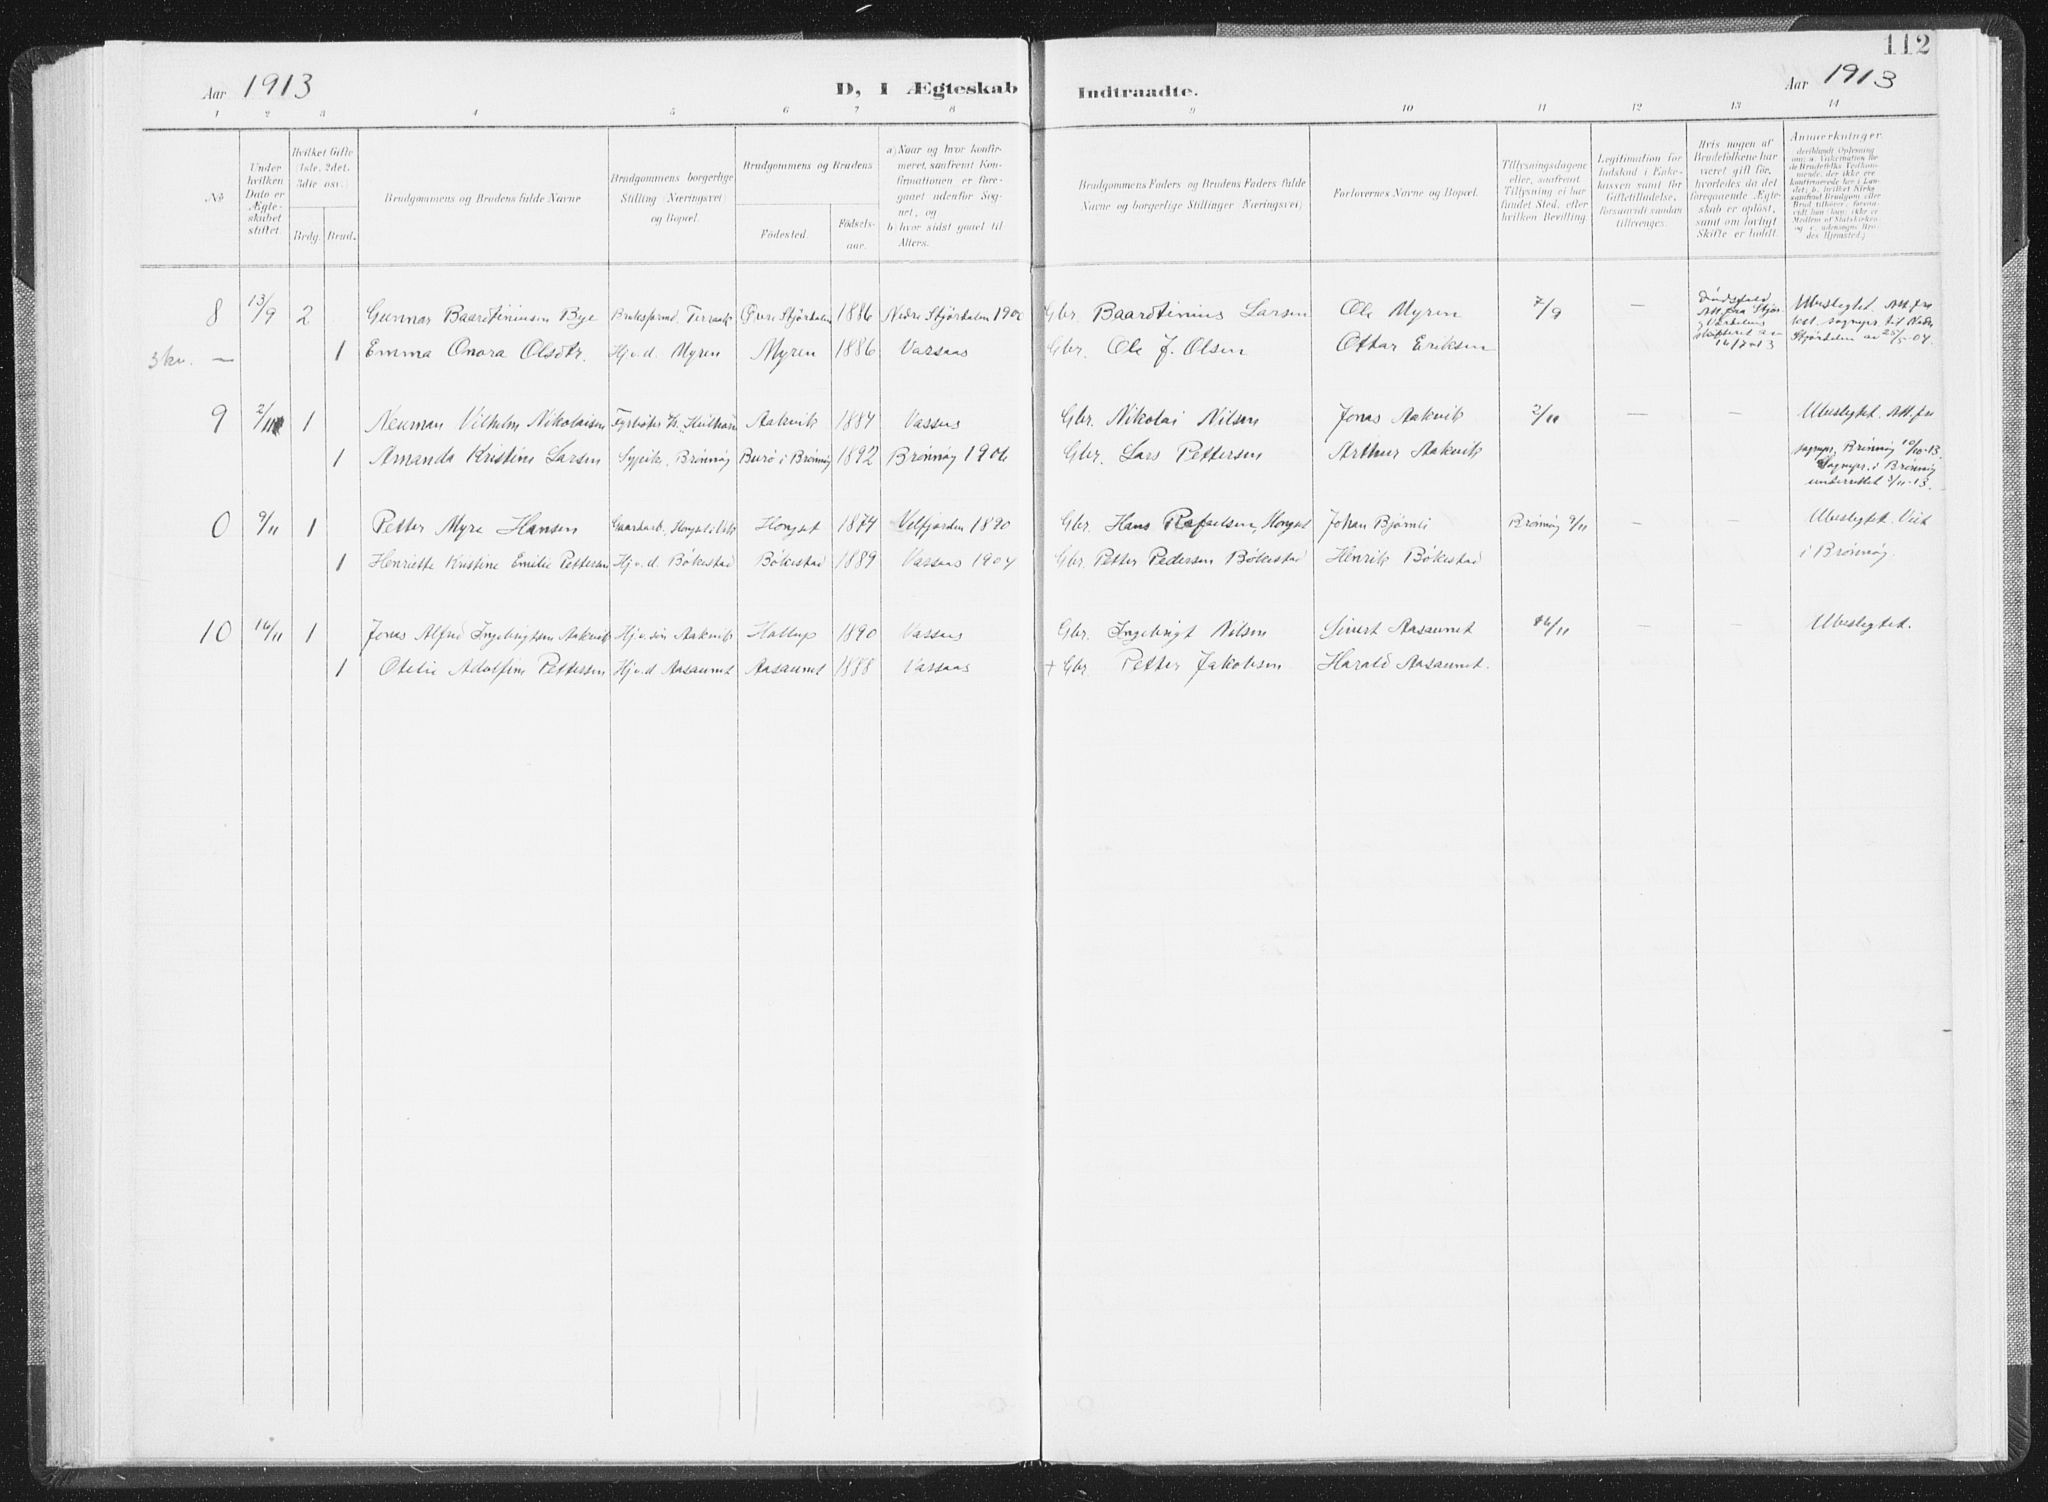 112
Aar 1913 D, I Ægteskab Indtraadte. Aar 1913
1 2 3 4 5 6 7 8 9 10 11 12 13 14
No
Under hvilken Dato er Ægteskabet stiftet.
Hvilket Gifte (1ste, 2det, 3die osv.)
Brdg. Brud.
Brudgommens og Brudens fulde Navne
Brudgommens borgerlige Stilling (Næringsvei) og Bopæl.
Brudgommens og Brudens
Födested.
Födsels-aar.
a) Naar og hvor konfirmeret, saafremt Konfirmationen er foregaaet udenfor Sognet, og
b) hvor sidst gaaet til Alters.
Brudgommens Faders og Brudens Faders fulde Navne og borgerlige Stillinger (Næringsvei)
Forlovernes Navne og Bopæl.
Tillysningsdagene eller, saafremt Tillysning ei har fundet Sted, efter hvilken Bevilling.
Legitimation for Indskud i Enkekassen samt for Giftetilladelse, forsaavidt saadan tiltrænges.
Hvis nogen af Brudefolkene har været gift för, hvorledes da det foregaaende Ægteskab er oplöst, samt om lovligt Skifte er holdt.
Anmærkninger,
8 13/9 2 Gunnar Baardtiniusen Bye Bruksformd. Terraak Övre Stjördalen 1886 Nedre Stjördalen 190 Gbr. Baardtinius Larsen Ole Myren 7/9 — Dödsfald Ubeslegtet. Att. fra
3 kv. — 1 Emma Onora Olsdtr. Hj.v.d. Myren Myren 1886 Vassaas Gbr. Ole J. Olsen Ottar Eriksen 16/7 13 Stjördalen av 25/5-04.
9 2/11 1 Neuman Vilhelm Nikolaisen Fyrböter Aakvik 1884 Vassaas Gbr. Nikolai Nilsen Jonas Aakvik 2/11 — — Ubeslegtet. Att. fra
1 Amanda Kristine Larsen Sypike, Brönnöy Burö i Brönnöy 1892 Brönnöy 1906 Gbr. Lars Pettersen Arthur Aakvik sognepr. Brönnöy 10/10-13.
Sognepr. i Brönnöy
underrettet 3/11-13.
0 9/11 1 Petter Myre Hansen Gaardarb. Hongset 1874 Velfjorden 1890 Gbr. Hans Rafaelsen, Hongset Johan Björnli Brönnöy 9/11 — — Ubeslegtet. Viet
1 Henriette Kristine Emilie Pettersen Hj.v.d. Bökestad Bökestad 1889 Vassaas 1904 Gbr. Petter Pedersen Bökestad Henrik Bökestad i Brönnöy.
10 16/11 1 Jonas Alfred Ingebrigtsen Aakvik Hj.v.sön Aakvik Holtup 1890 Vassaas Gbr. Ingebrigt Nilsen Sivert Aasaunet 16/11 — — Ubeslegtet.
1 Otelie Adolfine Pettersen Hj.v.d. Aasaunet Aasaunet 1888 Vassaas + Gbr. Petter Jakobsen Harald Aasaunet.